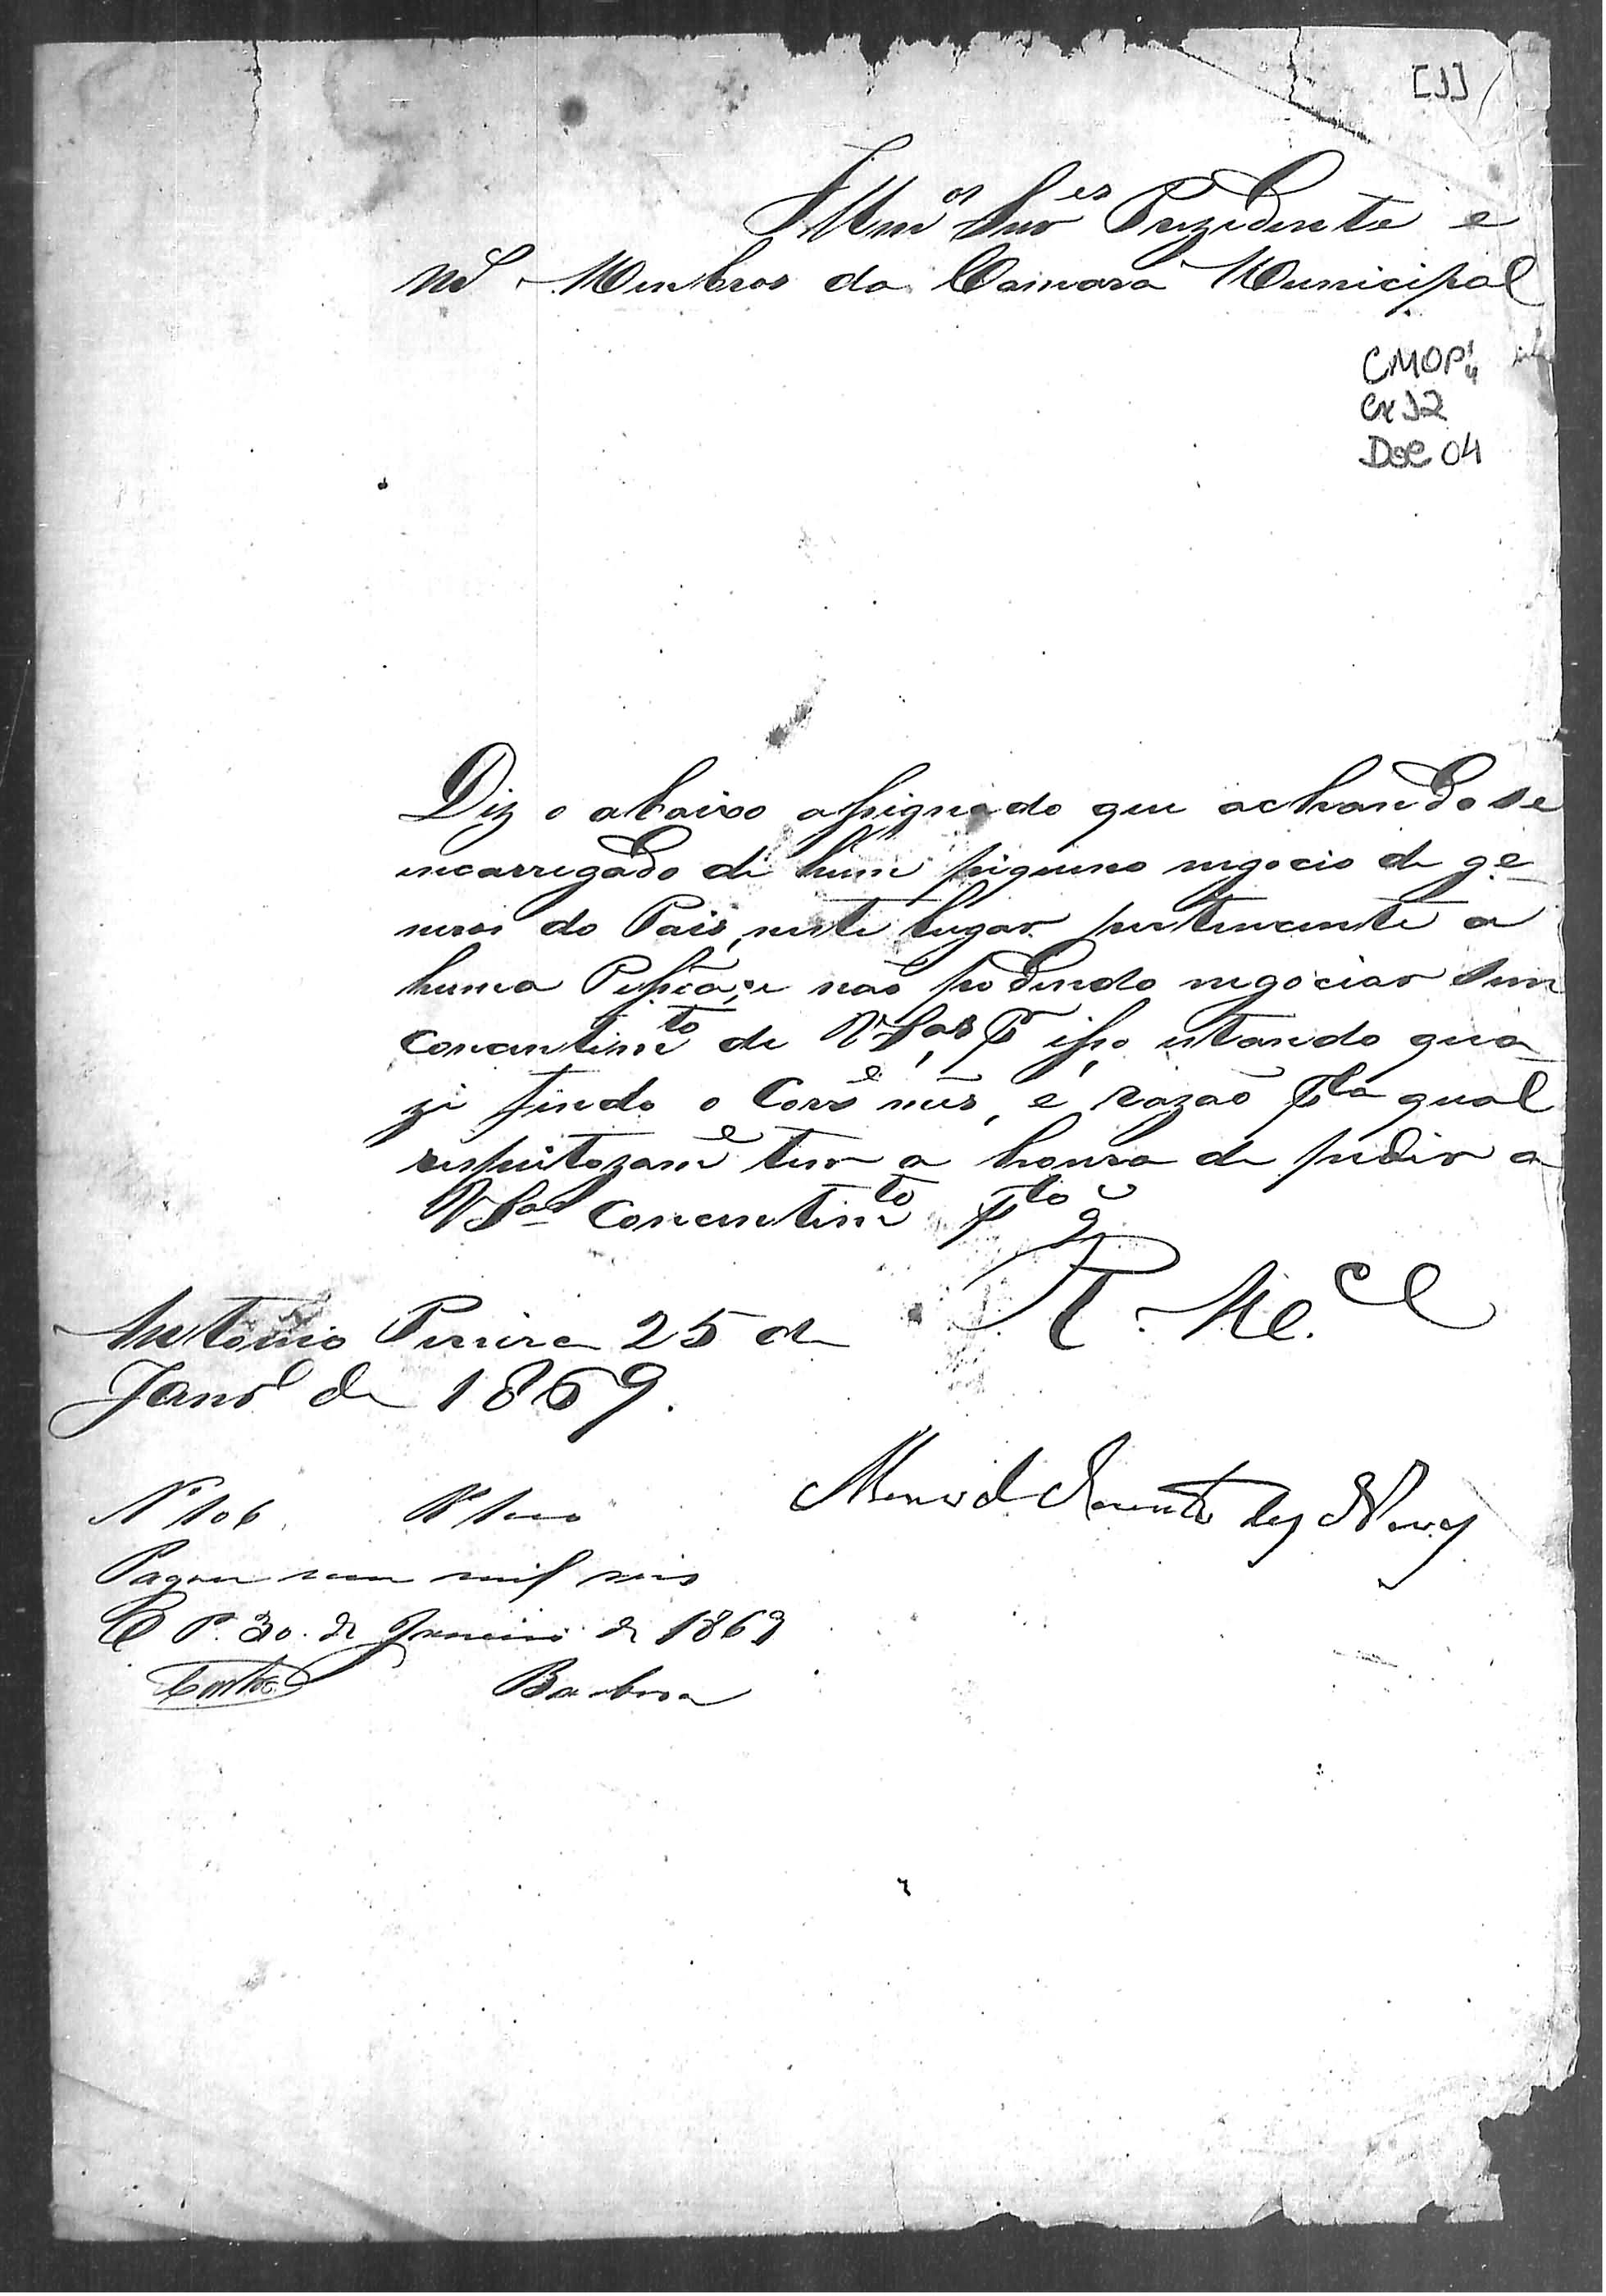 [1]
Illmos Snres Prezidente e
M. Membros da Camara Municipal
CMOP
Cx 12
Doc 04
Diz o abaixo assignado que achando se
incarregado de hum piqueno negocio de ge-
neros do Pais, neste lugar pertencente a
huma Pessôa, e não podendo negociar sem
Concentimto de VSas, Pr isso estando qua-
zi findo o Corre mes, é razão pla qual
respeitozame tem a honra de pedir a
VSas Concentimto Pto
R. Mce
Antonio Pereira 25 de
Janro de 1869.
Manoel das Neves
No 106
Pagou um mil reis
O P. 30 de Janeiro de 1869
Barbosa